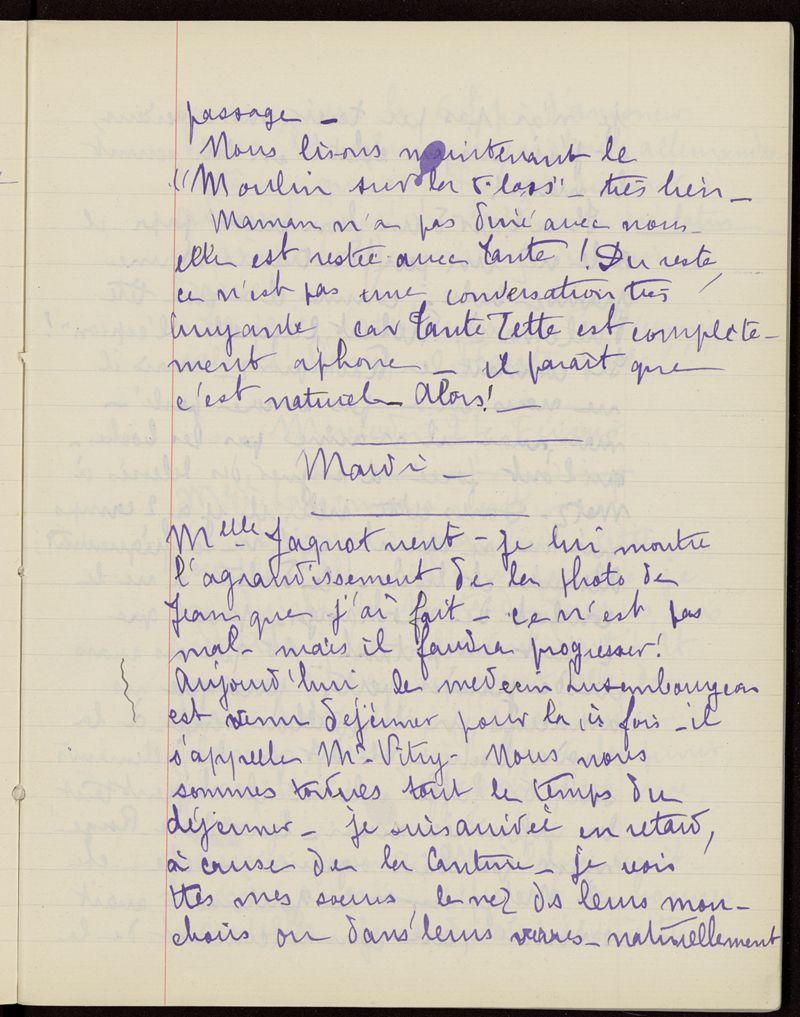 passage –
Nous lisons maintenant le
"Moulin sur la Floss" – très bien –
Maman n'a pas diné avec nous –
elle est restée avec tante ! Du reste,
ce n'est pas une conversation très
bruyante car tante Tette est complète-
ment aphone – il paraît que
c'est naturel – Alors! –
Mardi –
Melle Jagnot vient – Je lui montre
l'agrandissement de la photo de
Jean que j'ai fait – ce n'est pas
mal – mais il faudra progresser!
Aujourd'hui le medecin Luxembourgeois
est venu dejeuner pour la 1ère fois – il
s'appelle Mr Vitry – Nous nous
sommes tordues tout le temps du
déjeuner – je suis arrivée en retard,
à cause de la Cantine – je vois
ttes mes sœurs le nez ds leurs mou-
choirs ou dans leurs verres – naturellement